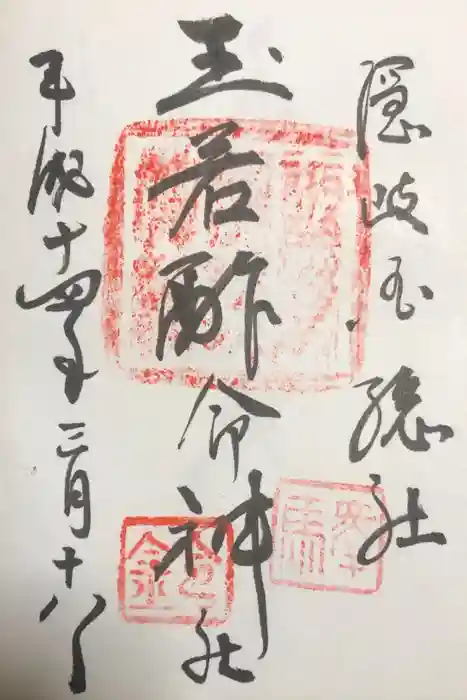 隠岐国總社
玉若酢命神社
平成十四年三月十八